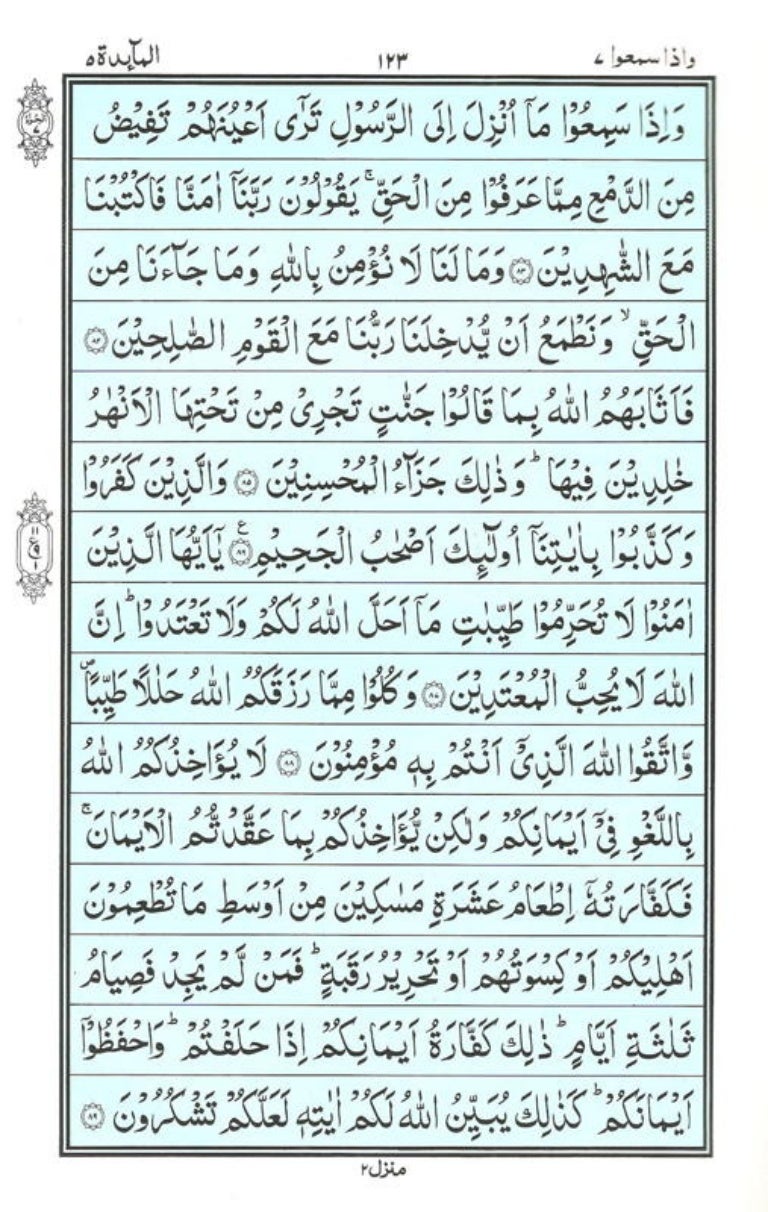 المآىِٕدة ٥
١٢٣
واذا سمعوا ٧
وَاِذَا سَمِعُوْا مَاۤ اُنْزِلَ اِلَى الرَّسُوْلِ تَرٰۤى اَعْيُنَهُمْ تَفِيْضُ
مِنَ الدَّمْعِ مِمَّا عَرَفُوْا مِنَ الْحَقِّ ۚ يَقُوْلُوْنَ رَبَّنَاۤ اٰمَنَّا فَاكْتُبْنَا
مَعَ الشّٰهِدِيْنَ ۝٨٣ وَمَا لَنَا لَا نُؤْمِنُ بِاللّٰهِ وَمَا جَآءَنَا مِنَ
الْحَقِّ ۙ وَنَطْمَعُ اَنْ يُّدْخِلَنَا رَبُّنَا مَعَ الْقَوْمِ الصّٰلِحِيْنَ ۝٨٤
فَاَثَابَهُمُ اللّٰهُ بِمَا قَالُوْا جَنّٰتٍ تَجْرِيْ مِنْ تَحْتِهَا الْاَنْهٰرُ
خٰلِدِيْنَ فِيْهَا ؕ وَذٰلِكَ جَزَآءُ الْمُحْسِنِيْنَ ۝٨٥ وَالَّذِيْنَ كَفَرُوْا
وَكَذَّبُوْا بِاٰيٰتِنَاۤ اُولٰٓىِٕكَ اَصْحٰبُ الْجَحِيْمِ ۝٨٦ ع يٰۤاَيُّهَا الَّذِيْنَ
اٰمَنُوْا لَا تُحَرِّمُوْا طَيِّبٰتِ مَاۤ اَحَلَّ اللّٰهُ لَكُمْ وَلَا تَعْتَدُوْا ؕ اِنَّ
اللّٰهَ لَا يُحِبُّ الْمُعْتَدِيْنَ ۝٨٧ وَكُلُوْا مِمَّا رَزَقَكُمُ اللّٰهُ حَلٰلًا طَيِّبًا ۪
وَّاتَّقُوا اللّٰهَ الَّذِيْۤ اَنْتُمْ بِهٖ مُؤْمِنُوْنَ ۝٨٨ لَا يُؤَاخِذُكُمُ اللّٰهُ
بِاللَّغْوِ فِيْۤ اَيْمَانِكُمْ وَلٰكِنْ يُّؤَاخِذُكُمْ بِمَا عَقَّدْتُّمُ الْاَيْمَانَ ۚ
فَكَفَّارَتُهٗۤ اِطْعَامُ عَشَرَةِ مَسٰكِيْنَ مِنْ اَوْسَطِ مَا تُطْعِمُوْنَ
اَهْلِيْكُمْ اَوْ كِسْوَتُهُمْ اَوْ تَحْرِيْرُ رَقَبَةٍ ؕ فَمَنْ لَّمْ يَجِدْ فَصِيَامُ
ثَلٰثَةِ اَيَّامٍ ؕ ذٰلِكَ كَفَّارَةُ اَيْمَانِكُمْ اِذَا حَلَفْتُمْ ؕ وَاحْفَظُوْۤا
اَيْمَانَكُمْ ؕ كَذٰلِكَ يُبَيِّنُ اللّٰهُ لَكُمْ اٰيٰتِهٖ لَعَلَّكُمْ تَشْكُرُوْنَ ۝٨٩
منزل ٢